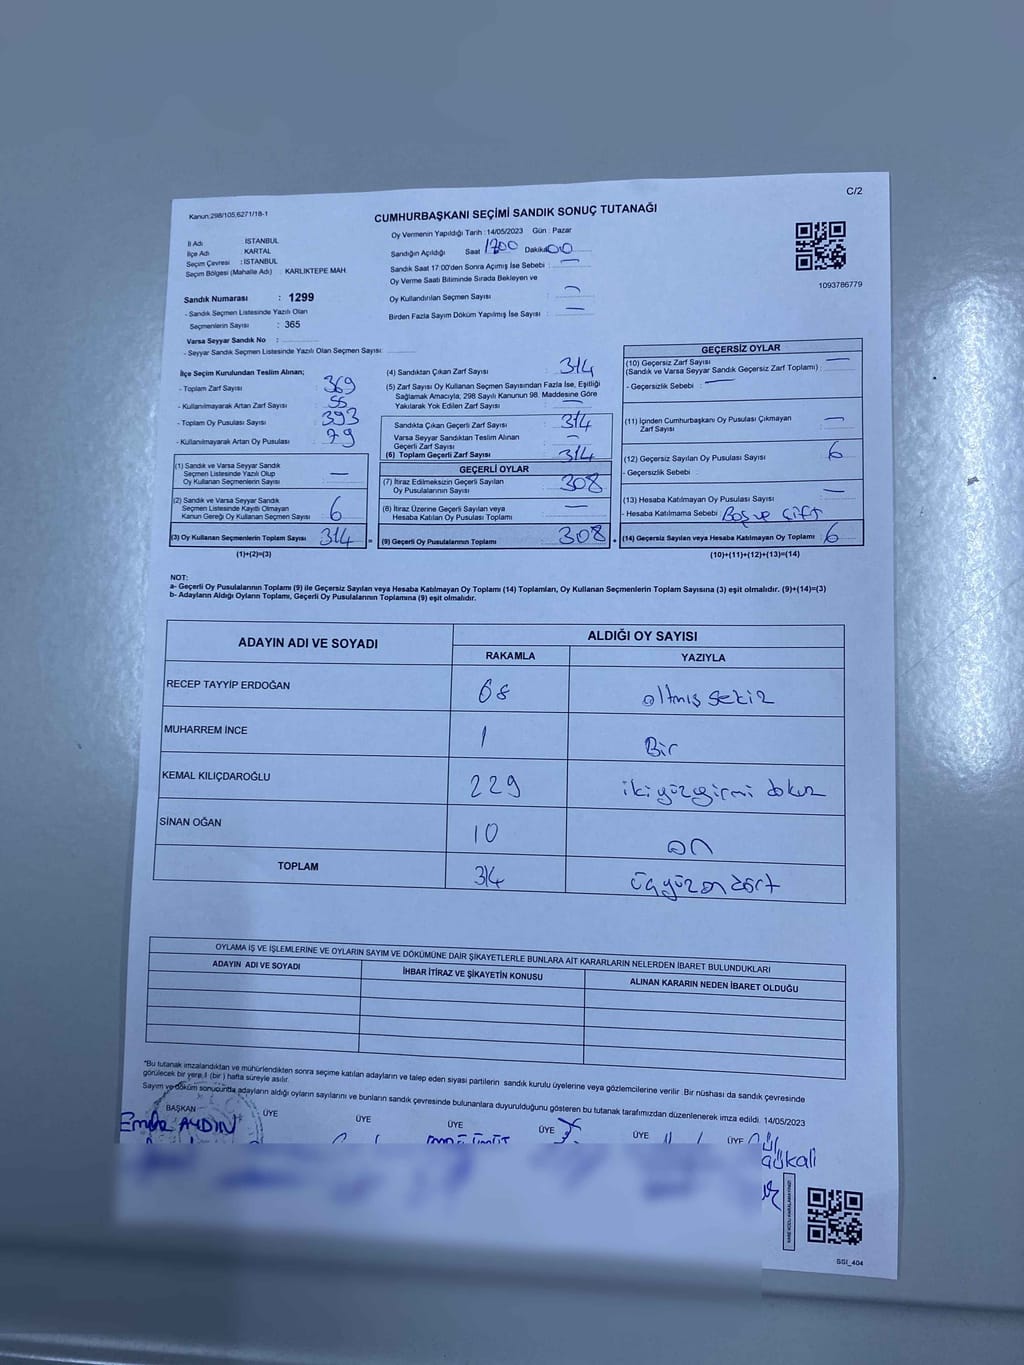 C/2
Kanun:298/105,6271/18-1
CUMHURBAŞKANI SEÇİMİ SANDIK SONUÇ TUTANAĞI
Oy Vermenin Yapıldığı Tarih : 14/05/2023 Gün : Pazar
İl Adı İSTANBUL
İlçe Adı KARTAL
Seçim Çevresi : İSTANBUL
Seçim Bölgesi (Mahalle Adı) : KARLIKTEPE MAH
Sandığın Açıldığı Saat 1700 Dakika 00
Sandık Saat 17:00'den Sonra Açımış İse Sebebi : —
Oy Verme Saati Bitiminde Sırada Bekleyen ve
Oy Kullandırılan Seçmen Sayısı : —
Birden Fazla Sayım Döküm Yapılmış İse Sayısı : —
1093786779
Sandık Numarası : 1299
- Sandık Seçmen Listesinde Yazılı Olan
Seçmenlerin Sayısı : 365
Varsa Seyyar Sandık No :
- Seyyar Sandık Seçmen Listesinde Yazılı Olan Seçmen Sayısı:
İlçe Seçim Kurulundan Teslim Alınan;
- Toplam Zarf Sayısı : 369
- Kullanılmayarak Artan Zarf Sayısı : 55
- Toplam Oy Pusulası Sayısı : 393
- Kullanılmayarak Artan Oy Pusulası : 79
(1) Sandık ve Varsa Seyyar Sandık
Seçmen Listesinde Yazılı Olup
Oy Kullanan Seçmenlerin Sayısı —
(2) Sandık ve Varsa Seyyar Sandık
Seçmen Listesinde Kayıtlı Olmayan
Kanun Gereği Oy Kullanan Seçmen Sayısı 6
(3) Oy Kullanan Seçmenlerin Toplam Sayısı 314 =
(1)+(2)=(3)
(4) Sandıktan Çıkan Zarf Sayısı : 314
(5) Zarf Sayısı Oy Kullanan Seçmen Sayısından Fazla İse, Eşitliği
Sağlamak Amacıyla; 298 Sayılı Kanunun 98. Maddesine Göre
Yakılarak Yok Edilen Zarf Sayısı : —
Sandıkta Çıkan Geçerli Zarf Sayısı : 314
Varsa Seyyar Sandıktan Teslim Alınan
Geçerli Zarf Sayısı : —
(6) Toplam Geçerli Zarf Sayısı : 314
GEÇERLİ OYLAR
(7) İtiraz Edilmeksizin Geçerli Sayılan
Oy Pusulalarının Sayısı : 308
(8) İtiraz Üzerine Geçerli Sayılan veya
Hesaba Katılan Oy Pusulası Toplamı : —
(9) Geçerli Oy Pusulalarının Toplamı : 308 +
GEÇERSİZ OYLAR
(10) Geçersiz Zarf Sayısı
(Sandık ve Varsa Seyyar Sandık Geçersiz Zarf Toplamı) : —
- Geçersizlik Sebebi : —
(11) İçinden Cumhurbaşkanı Oy Pusulası Çıkmayan
Zarf Sayısı : —
(12) Geçersiz Sayılan Oy Pusulası Sayısı : 6
- Geçersizlik Sebebi :
(13) Hesaba Katılmayan Oy Pusulası Sayısı : —
- Hesaba Katılmama Sebebi : Boş ve Çift
(14) Geçersiz Sayılan veya Hesaba Katılmayan Oy Toplamı : 6
(10)+(11)+(12)+(13)=(14)
NOT:
a- Geçerli Oy Pusulalarının Toplamı (9) ile Geçersiz Sayılan veya Hesaba Katılmayan Oy Toplamı (14) Toplamları, Oy Kullanan Seçmenlerin Toplam Sayısına (3) eşit olmalıdır. (9)+(14)=(3)
b- Adayların Aldığı Oyların Toplamı, Geçerli Oy Pusulalarının Toplamına (9) eşit olmalıdır.
ADAYIN ADI VE SOYADI
ALDIĞI OY SAYISI
RAKAMLA YAZIYLA
RECEP TAYYİP ERDOĞAN 68 altmış sekiz
MUHARREM İNCE 1 Bir
KEMAL KILIÇDAROĞLU 229 ikiyüzyirmi dokuz
SİNAN OĞAN 10 on
TOPLAM 314 üçyüz on dört
OYLAMA İŞ VE İŞLEMLERİNE VE OYLARIN SAYIM VE DÖKÜMÜNE DAİR ŞİKAYETLERLE BUNLARA AİT KARARLARIN NELERDEN İBARET BULUNDUKLARI
ADAYIN ADI VE SOYADI İHBAR İTİRAZ VE ŞİKAYETİN KONUSU ALINAN KARARIN NEDEN İBARET OLDUĞU
*Bu tutanak imzalandıktan ve mühürlendikten sonra seçime katılan adayların ve talep eden siyasi partilerin sandık kurulu üyelerine veya gözlemcilerine verilir. Bir nüshası da sandık çevresinde
görülecek bir yere 1 (bir) hafta süreyle asılır.
Sayım ve döküm sonucunda adayların aldığı oyların sayılarını ve bunların sandık çevresinde bulunanlara duyurulduğunu gösteren bu tutanak tarafımızdan düzenlenerek imza edildi. 14/05/2023
BAŞKAN ÜYE ÜYE ÜYE ÜYE ÜYE ÜYE
Emre AYDIN
SSI_404